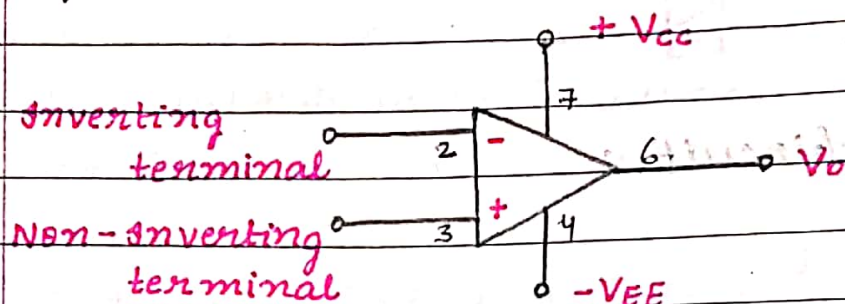 + Vcc
7
Inverting
terminal
2
-
6
Vo
+
Non-Inverting
terminal
3
4
-VEE